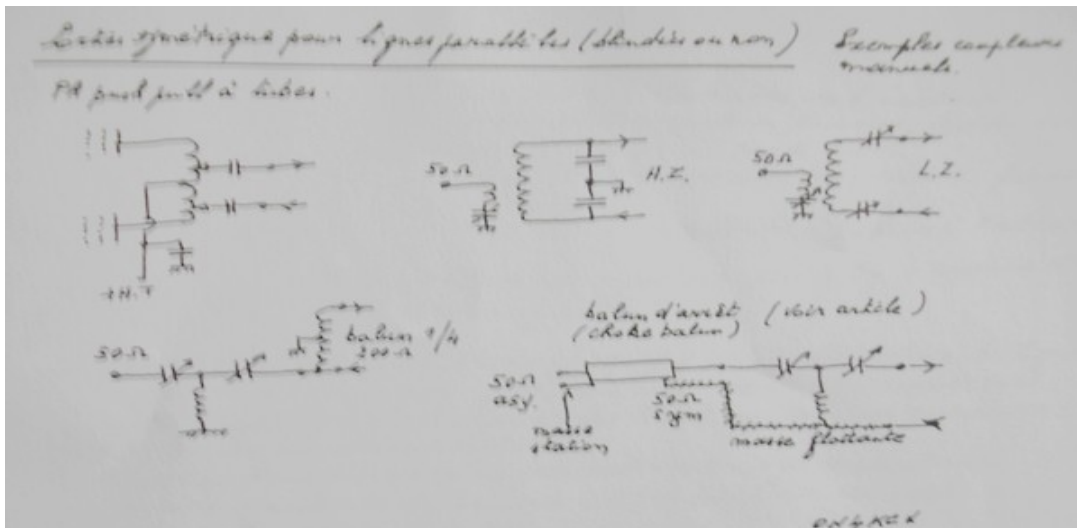 symétrique pour lignes parallèles (blindées ou non)
Exemples coupleurs
manuels.
PA push pull à tubes.
50 Ω
H.Z.
50 Ω
L.Z.
+H.T
50 Ω
balun 1/4
200 Ω
balun d'arrêt (voir article)
(choke balun)
50 Ω
asy.
50 Ω
sym
masse
station
masse flottante
ON4KEN